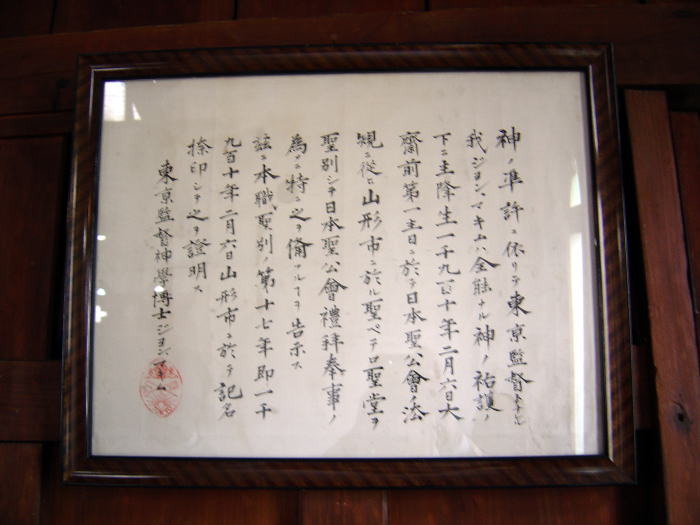 神ノ準許ニ依リテ東京監督タル
我ジヨン、マキムハ全能ナル神ノ祐護ノ
下ニ主降生一千九百十年二月六日大
齋前第一主日ニ於テ日本聖公會ノ法
規ニ従ヒ山形市ニ於ル聖ペテロ聖堂ヲ
聖別シテ日本聖公會禮拜奉事ノ
為ニ特ニ之ヲ備フルヿヲ告示ス
茲ニ本職聖別ノ第十七年即一千
九百十年二月六日山形市ニ於テ記名
捺印シテ之ヲ證明ス
東京監督神學博士ジヨン、マキム